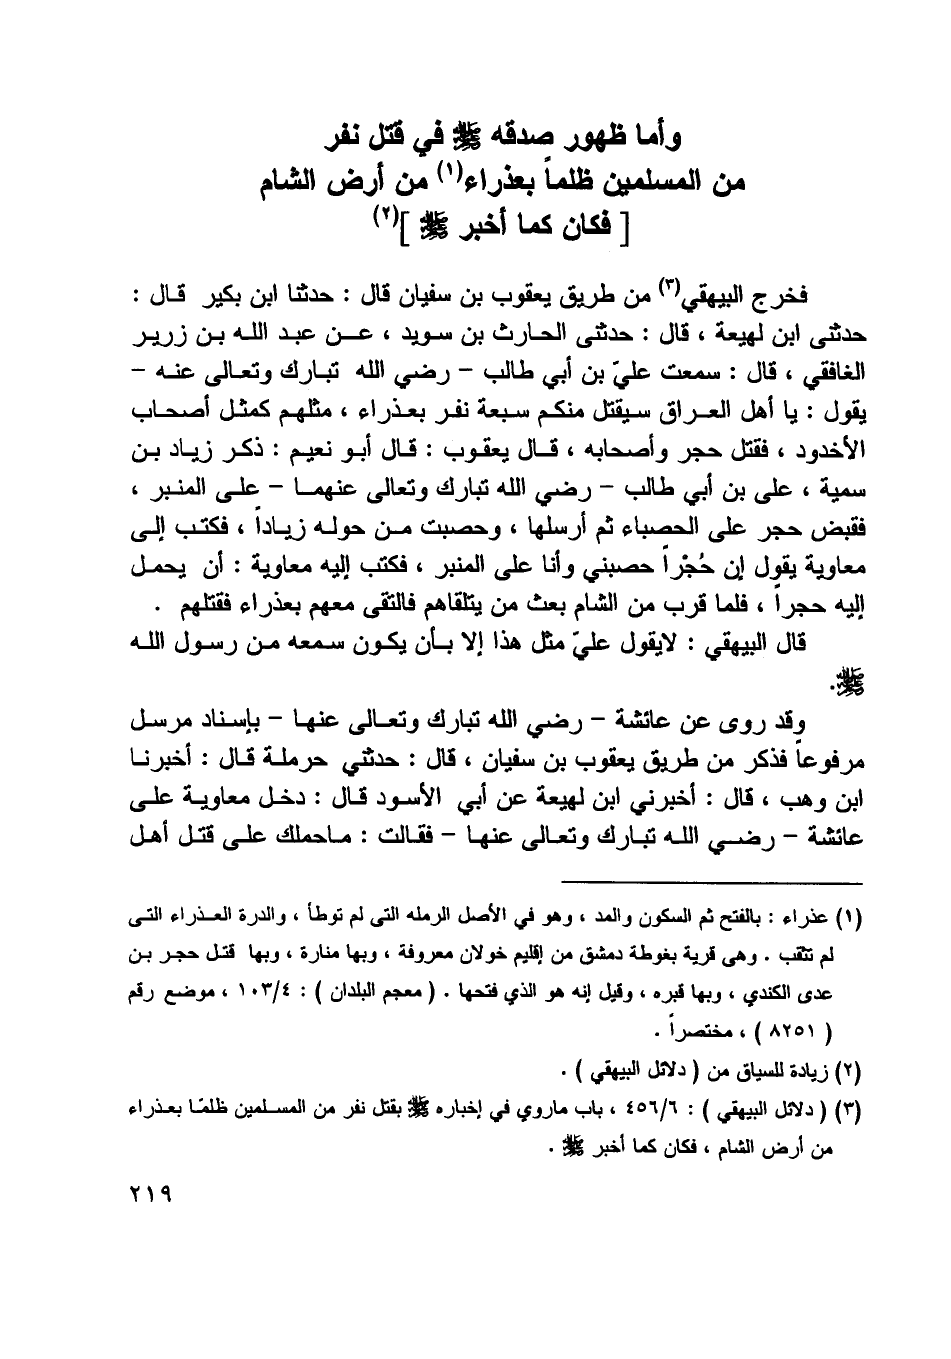 وأما ظهور صدقه ﷺ في قتل نفر
من المسلمين ظلماً بعذراء(١) من أرض الشام
[ فكان كما أخبر ﷺ ](٢)
فخرج البيهقي(٣) من طريق يعقوب بن سفيان قال : حدثنا ابن بكير قال :
حدثنى ابن لهيعة ، قال : حدثنى الحارث بن سويد ، عن عبد الله بن زرير
الغافقي ، قال : سمعت عليّ بن أبي طالب – رضي الله تبارك وتعالى عنه –
يقول : يا أهل العراق سيقتل منكم سبعة نفر بعذراء ، مثلهم كمثل أصحاب
الأخدود ، فقتل حجر وأصحابه ، قال يعقوب : قال أبو نعيم : ذكر زياد بن
سمية ، على بن أبي طالب – رضي الله تبارك وتعالى عنهما – على المنبر ،
فقبض حجر على الحصباء ثم أرسلها ، وحصبت من حوله زياداً ، فكتب إلى
معاوية يقول إن حُجْراً حصبني وأنا على المنبر ، فكتب إليه معاوية : أن يحمل
إليه حجراً ، فلما قرب من الشام بعث من يتلقاهم فالتقى معهم بعذراء فقتلهم .
قال البيهقي : لايقول عليّ مثل هذا إلا بأن يكون سمعه من رسول الله
ﷺ.
وقد روى عن عائشة – رضي الله تبارك وتعالى عنها – بإسناد مرسل
مرفوعاً فذكر من طريق يعقوب بن سفيان ، قال : حدثني حرملة قال : أخبرنا
ابن وهب ، قال : أخبرني ابن لهيعة عن أبي الأسود قال : دخل معاوية على
عائشة – رضي الله تبارك وتعالى عنها – فقالت : ماحملك على قتل أهل
(١) عذراء : بالفتح ثم السكون والمد ، وهو في الأصل الرمله التى لم توطأ ، والدرة العذراء التى
لم تثقب . وهى قرية بغوطة دمشق من إقليم خولان معروفة ، وبها منارة ، وبها قتل حجر بن
عدى الكندي ، وبها قبره ، وقيل إنه هو الذي فتحها . ( معجم البلدان ) : ١٠٣/٤ ، موضع رقم
( ٨٢٥١ ) ، مختصراً .
(٢) زيادة للسياق من ( دلائل البيهقي ) .
(٣) ( دلائل البيهقي ) : ٤٥٦/٦ ، باب ماروي في إخباره ﷺ بقتل نفر من المسلمين ظلمًا بعذراء
من أرض الشام ، فكان كما أخبر ﷺ .
٢١٩